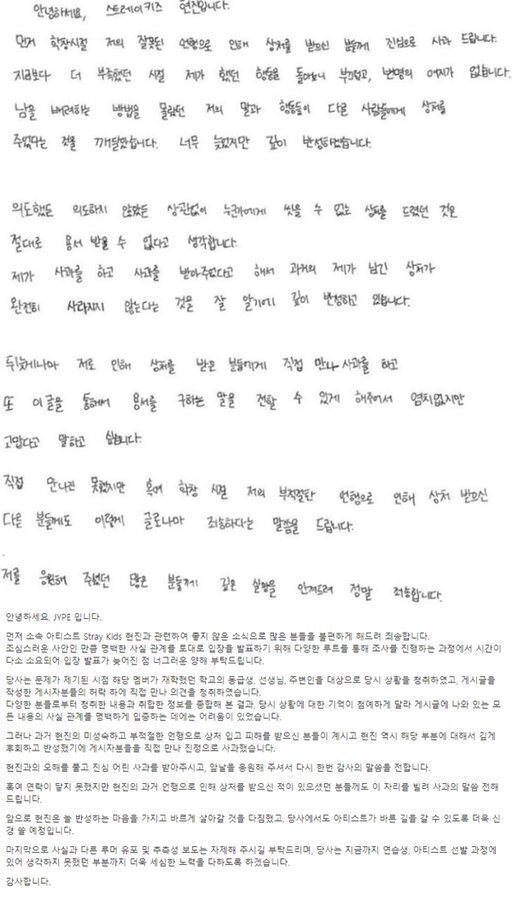 안녕하세요, 스트레이키즈 현진입니다.
먼저 학창시절 저의 잘못된 언행으로 인해 상처를 받으신 분들께 진심으로 사과 드립니다.
지금보다 더 부족했던 시절 제가 했던 행동을 돌아보니 부끄럽고, 변명의 여지가 없습니다.
남을 배려하는 방법을 몰랐던 저의 말과 행동들이 다른 사람들에게 상처를
주었다는 것을 깨달았습니다. 너무 늦었지만 깊이 반성하겠습니다.
의도했든 의도하지 않았든 상관없이 누군가에게 씻을 수 없는 상처를 드렸던 것은
절대로 용서 받을 수 없다고 생각합니다.
제가 사과를 하고 사과를 받아주었다고 해서 과거의 제가 남긴 상처가
완전히 사라지지 않는다는 것을 잘 알기에 깊이 반성하고 있습니다.
뒤늦게나마 저로 인해 상처를 받은 분들에게 직접 만나 사과를 하고
또 이 글을 통해서 용서를 구하는 말을 전할 수 있게 해주어서 염치없지만
고맙다고 말하고 싶습니다.
직접 만나진 못했지만 혹여 학창 시절 저의 부적절한 언행으로 인해 상처 받으신
다른 분들께도 이렇게 글로나마 죄송하다는 말씀을 드립니다.
저를 응원해 주셨던 많은 분들께 깊은 실망을 안겨드려 정말 죄송합니다.
안녕하세요. JYPE 입니다.
먼저 소속 아티스트 Stray Kids 현진과 관련하여 좋지 않은 소식으로 많은 분들을 불편하게 해드려 죄송합니다.
조심스러운 사안인 만큼 명백한 사실 관계를 토대로 입장을 발표하기 위해 다양한 루트를 통해 조사를 진행하는 과정에서 시간이
다소 소요되어 입장 발표가 늦어진 점 너그러운 양해 부탁드립니다.
당사는 문제가 제기된 시점 해당 멤버가 재학했던 학교의 동급생, 선생님, 주변인을 대상으로 당시 상황을 청취하였고, 게시글을
작성한 게시자분들의 허락 하에 직접 만나 의견을 청취하였습니다.
다양한 분들로부터 청취한 내용과 취합한 정보를 종합해 본 결과, 당시 상황에 대한 기억이 첨예하게 달라 게시글에 나와 있는 모
든 내용의 사실 관계를 명백하게 입증하는 데에는 어려움이 있었습니다.
그러나 과거 현진의 미성숙하고 부적절한 언행으로 상처 입고 피해를 받으신 분들이 계시고 현진 역시 해당 부분에 대해서 깊게
후회하고 반성했기에 게시자분들을 직접 만나 진정으로 사과했습니다.
현진과의 오해를 풀고 진심 어린 사과를 받아주시고, 앞날을 응원해 주셔서 다시 한번 감사의 말씀을 전합니다.
혹여 연락이 닿지 못했지만 현진의 과거 언행으로 인해 상처를 받으신 적이 있으셨던 분들께도 이 자리를 빌려 사과의 말씀 전해
드립니다.
앞으로 현진은 늘 반성하는 마음을 가지고 바르게 살아갈 것을 다짐했고, 당사에서도 아티스트가 바른 길을 갈 수 있도록 더욱 신
경 쓸 예정입니다.
마지막으로 사실과 다른 루머 유포 및 추측성 보도는 자제해 주시길 부탁드리며, 당사는 지금까지 연습생, 아티스트 선발 과정에
있어 생각하지 못했던 부분까지 더욱 세심한 노력을 다하도록 하겠습니다.
감사합니다.